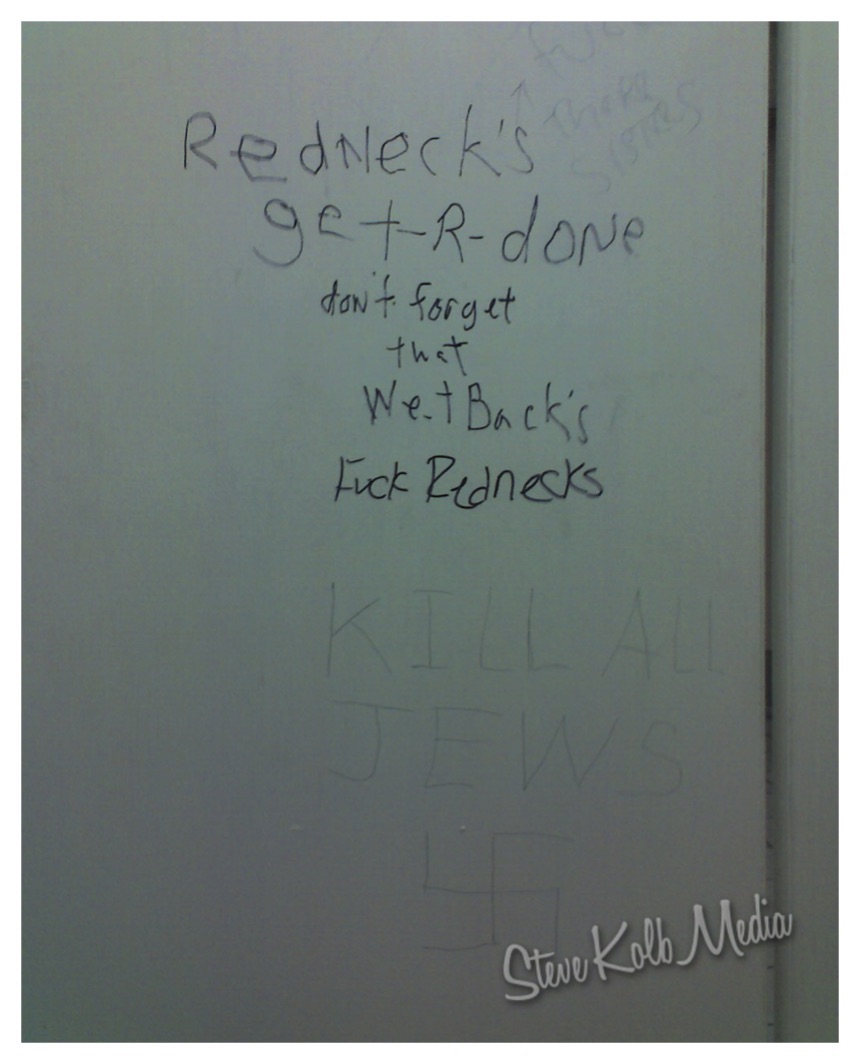 Redneck's
get-R-done
don't forget
that
WetBack's
Fuck Rednecks
KILL ALL
JEWS
Steve Kolb Media